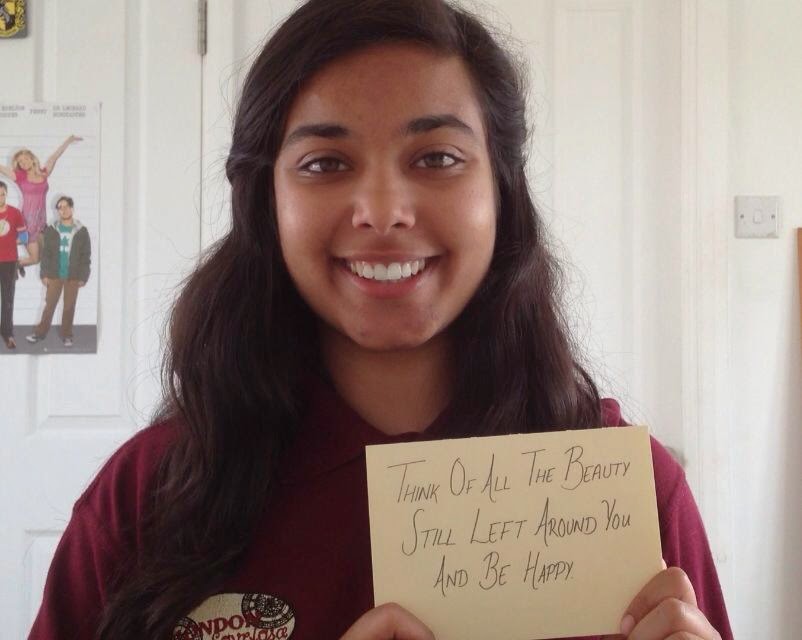 THINK OF ALL THE BEAUTY
STILL LEFT AROUND YOU
AND BE HAPPY.
PENNY DR LEONARD
LONDON